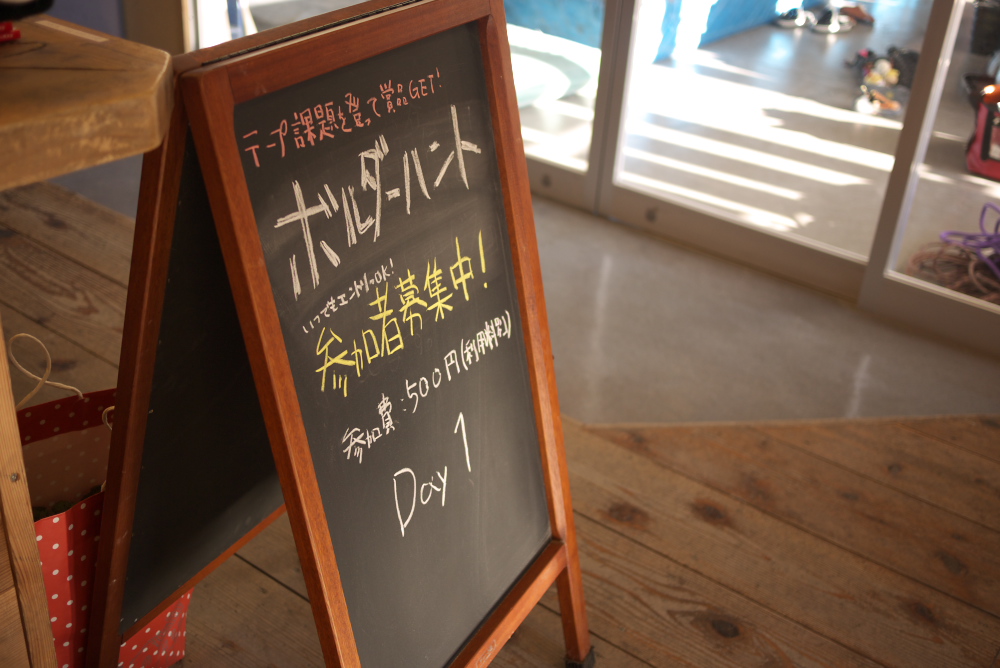 テープ課題を登って賞品GET!
ボルダーハント
いつでもエントリーOK!
参加者募集中!
参加費:500円(利用料別)
Day 1